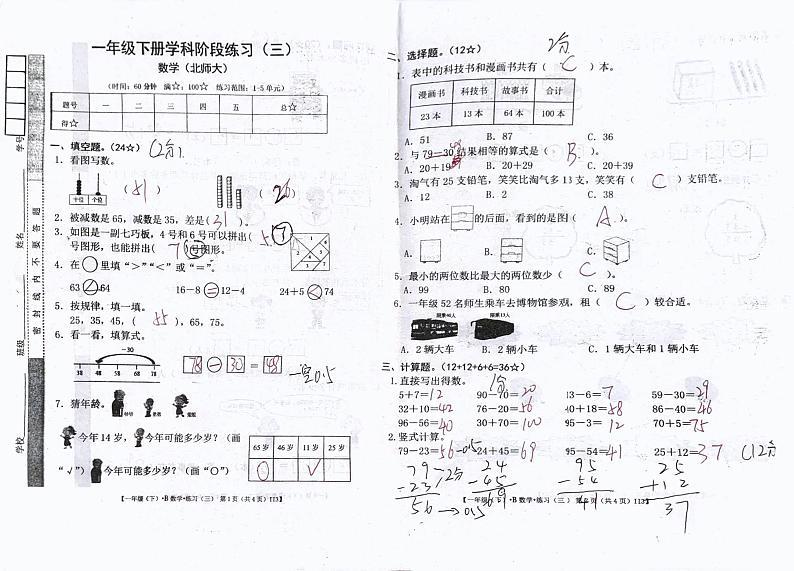 一年级下册学科阶段练习（三）
数学（北师大）
（时间：60分钟 满☆：100☆ 练习范围：1-5单元）
题号 一 二 三 四 五 总☆
得☆
学号
姓名
班级
学校
密封线内不要答题
一、填空题。（24☆）(2分)
1. 看图写数。
十位 个位
（81） （26）
2. 被减数是65，减数是35，差是（31）。
3. 如图是一副七巧板，4号和6号可以拼出（5）
号图形，也能拼出（7）号图形。
4. 在○里填“＞”“＜”或“＝”。
63 64 16－8＝12－4 24＋5＜74
5. 按规律，填一填。
25，35，45，（55），65，75。
6. 看一看，填算式。
－30
38 48 58 68 78
78－30＝48 一空0.5
7. 猜年龄。
今年14岁， 今年可能多少岁？（画
“√”） 今年可能多少岁？（画“○”）
65岁 46岁 11岁 25岁
○ √
【一年级（下）·B 数学·练习（三） 第1页（共4页）113】
二、选择题。（12☆） 2分
1. 表中的科技书和漫画书共有（C）本。
漫画书 科技书 故事书 合计
23本 13本 64本 100本
A. 51 B. 87 C. 36
2. 与79－30结果相等的算式是（B）。
A. 20＋19 B. 20＋29 C. 20＋39
3. 淘气有25支铅笔，笑笑比淘气多13支，笑笑有（C）支铅笔。
A. 12 B. 2 C. 38
4. 小明站在 的后面，看到的是图（A）。
A. B. C.
5. 最小的两位数比最大的两位数少（C）。
A. 99 B. 80 C. 89
6. 一年级52名师生乘车去博物馆参观，租（C）较合适。
限乘40人 限乘13人
A. 2辆大车 B. 2辆小车 C. 1辆大车和1辆小车
三、计算题。（12+12+6+6=36☆）
1. 直接写出得数。 1分
5＋7＝12 90－70＝20 13－6＝7 58－30＝29
32＋10＝42 76－20＝56 40＋18＝58 86－40＝46
96－56＝40 30＋70＝100 95－3＝92 70＋5＝75
2. 竖式计算。
79－23＝56 －0.5 24＋45＝69 95－54＝41 25＋12＝37 (12分
79 －2分 24 95 25
－23 －45 －54 ＋12
56 →0.5 69 41 37
【一年级（下）·B 数学·练习（三） 第2页（共4页）113】